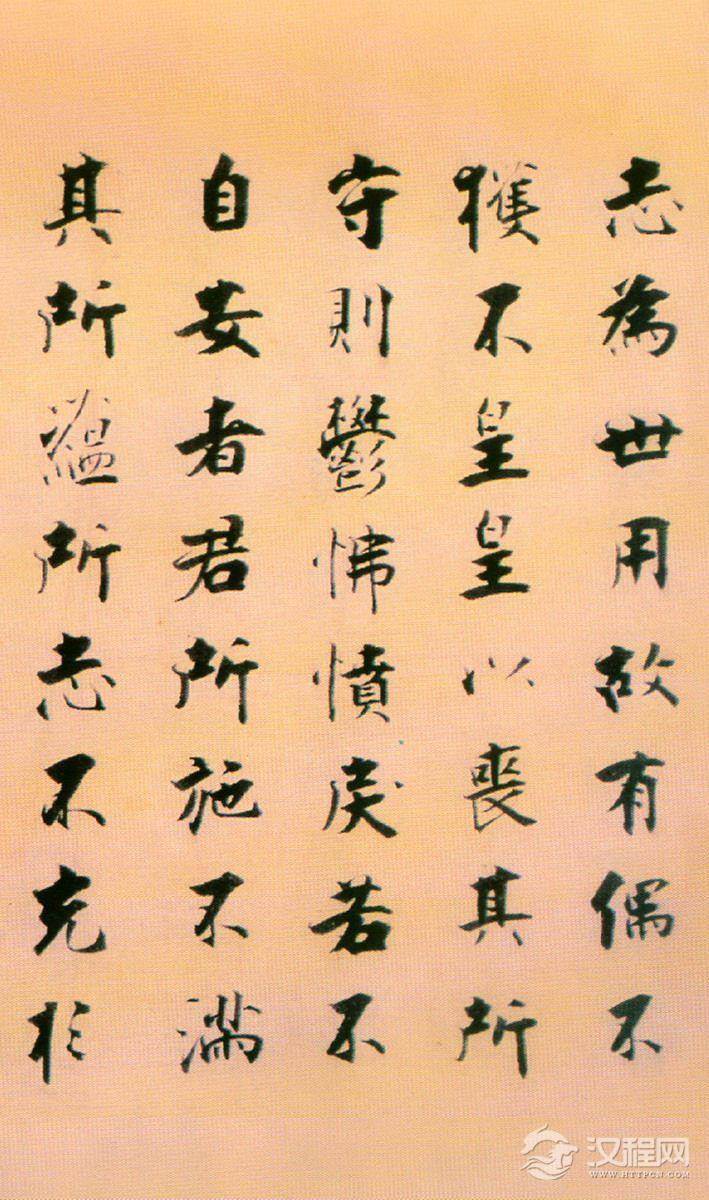 志為世用故有偶不
獲不皇皇以喪其所
守則鬱怫憤戾若不
自安者君所施不滿
其所蘊所志不充於
汉程网
WWW.HTTPCN.COM